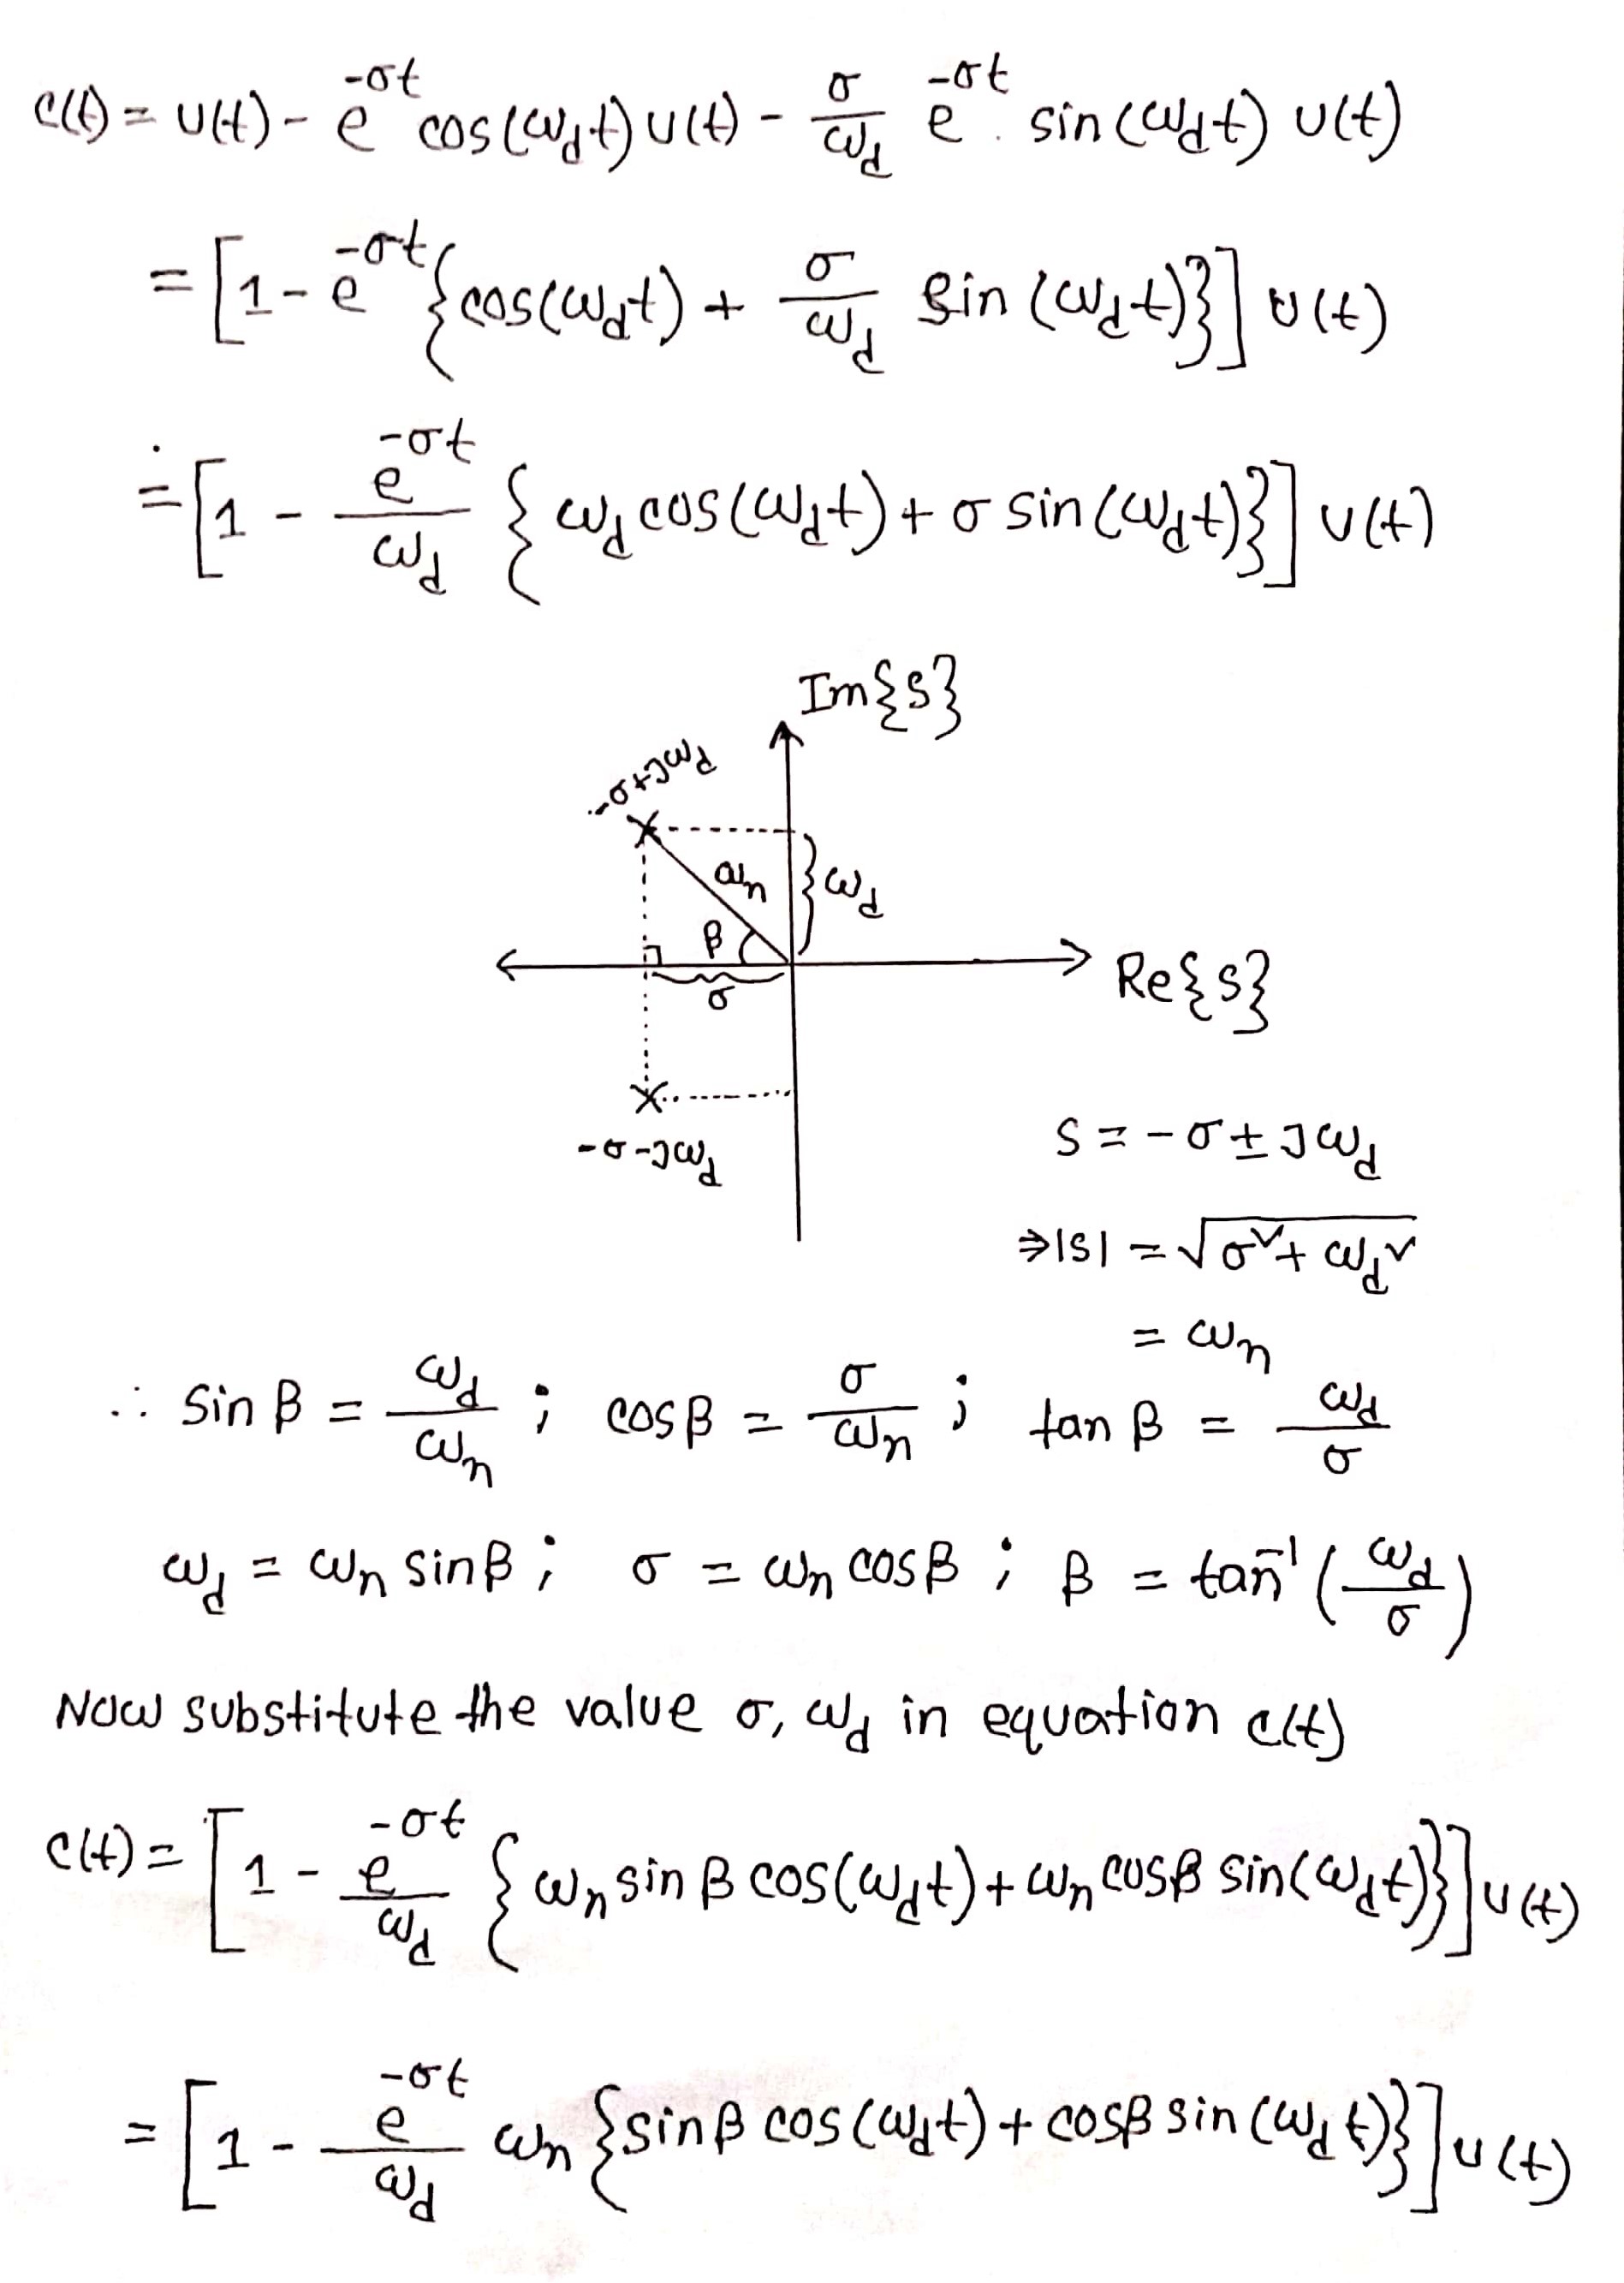 c(t) = u(t) - e^{-σt} cos(ω_d t) u(t) - σ/ω_d e^{-σt} . sin(ω_d t) u(t)
= [1 - e^{-σt} {cos(ω_d t) + σ/ω_d sin (ω_d t)}] u(t)
= [1 - e^{-σt}/ω_d {ω_d cos(ω_d t) + σ sin(ω_d t)}] u(t)
Im{s}
-σ+jω_d
ω_n
ω_d
β
σ
Re{s}
-σ-jω_d
s = -σ ± jω_d
⇒|s| = √(σ² + ω_d²)
= ω_n
∴ sin β = ω_d/ω_n ; cosβ = σ/ω_n ; tan β = ω_d/σ
ω_d = ω_n sinβ ; σ = ω_n cosβ ; β = tan⁻¹ (ω_d/σ)
Now substitute the value σ, ω_d in equation c(t)
c(t) = [1 - e^{-σt}/ω_d {ω_n sin β cos(ω_d t) + ω_n cosβ sin(ω_d t)}] u(t)
= [1 - e^{-σt}/ω_d ω_n {sinβ cos(ω_d t) + cosβ sin(ω_d t)}] u(t)